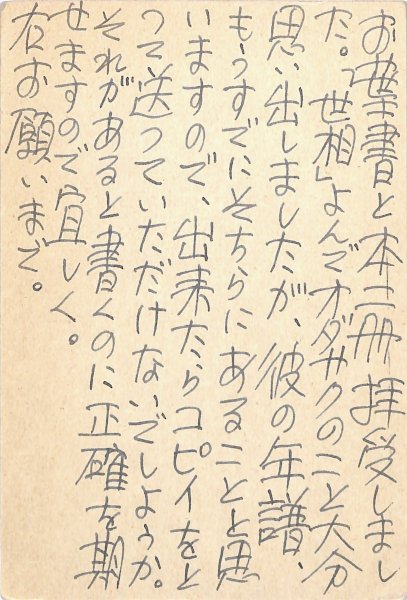 お葉書と本二冊拝受しまし
た。「世相」よんでオダサクのこと大分
思い出しましたが、彼の年譜、
もうすでにそちらにあることと思
いますので、出来たらコピイをと
って送っていただけないでしょうか。
それがあると書くのに正確を期
せますので宜しく。
右お願いまで。